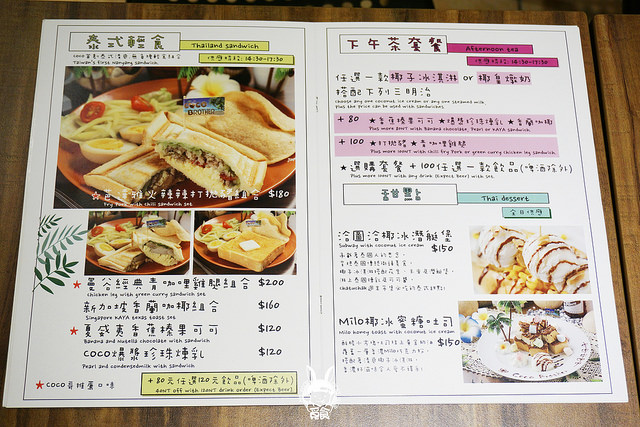 泰式輕食
Thailand sandwich
供應時段: 14:30-17:30
Taiwan's first Nanyang sandwich
COCO BROTHER
芭達雅火辣辣打拋豬組合 $180
Fry Pork with chili sandwich set
★曼谷經典青咖哩雞腿組合 $200
Chicken leg with green curry sandwich set
新加坡香蘭咖椰組合 $160
Singapore KAYA texas toast set
★夏威夷香蕉榛果可可 $120
Banana and Nutella chocolate sandwich
珍珠煉乳 $120
Pearl and condensedmilk sandwich
★COCO哥推薦口味
+80元任選120元飲品(啤酒除外)
40NT off with 120NT drink order (Expect Beer)
下午茶套餐
Afternoon tea
供應時段: 14:30-17:30
任選一款椰子冰淇淋 or 椰皇燉奶
搭配下列三明治
Choose any one coconut ice cream or any one steamed milk
Plus the price can be used with sandwiches
+80 ★香蕉榛果可可 ★爆漿珍珠煉乳 ★香蘭咖椰
Plus more 80NT with Banana chocolate, Pearl or KAYA sandwich
+100 ★打拋豬 ★香咖哩雞腿
Plus more 100NT with chili fry Pork or green curry chicken leg sandwich
★選購套餐 +100任選一款飲品(啤酒除外)
Plus more 100NT with any drink (Expect Beer) with set
Thai dessert
全日供應
洽圖洽椰冰潛艇堡
Subway with coconut ice cream
$150
Milo椰冰蜜糖吐司
Milo honey toast with coconut ice cream
$150
Coco Brother